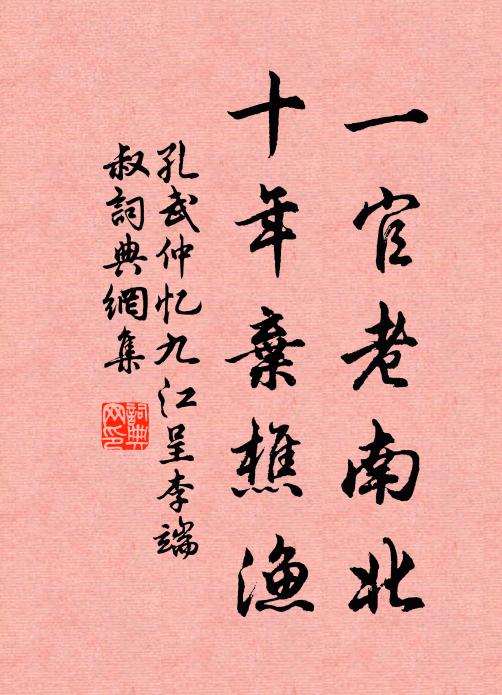 一官老南北
十年棄樵漁
孔武仲忆九江呈李端
叔詞典網集
詞典网印